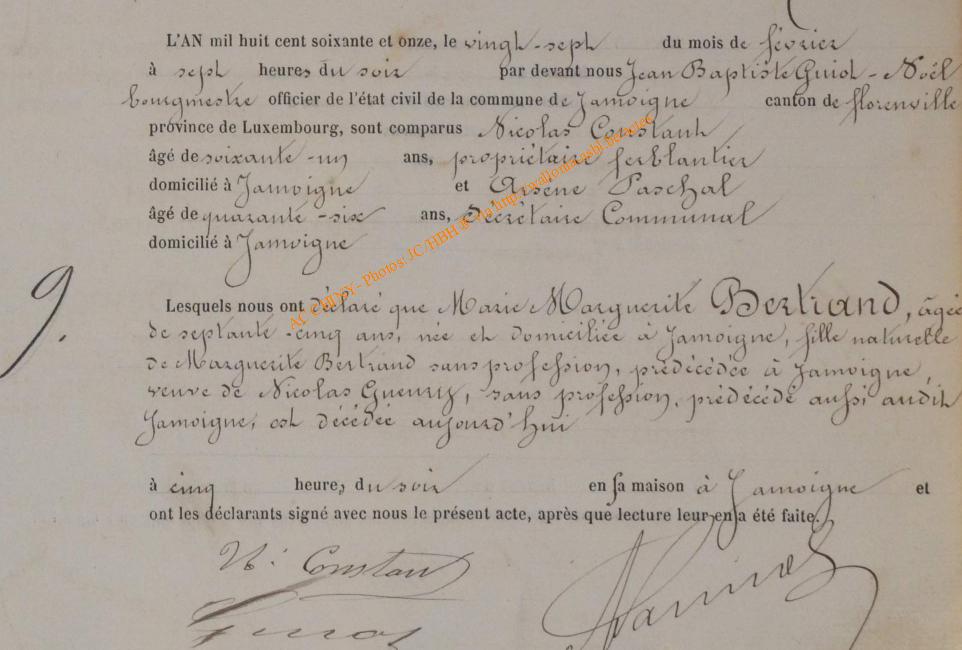 L'AN mil huit cent soixante et onze, le vingt-sept du mois de février
à sept heures du soir par devant nous Jean Baptiste Guiot-Noël
bourgmestre officier de l'état civil de la commune de Jamoigne canton de florenville
province de Luxembourg, sont comparus Nicolas Constant
âgé de soixante-un ans, propriétaire ferblantier
domicilié à Jamoigne et Arsène Paschal
âgé de quarante-six ans, Sécrétaire Communal
domicilié à Jamoigne
9.
Lesquels nous ont déclaré que Marie Marguerite Bertrand, âgée
de septante-cinq ans, née et domiciliée à Jamoigne, fille naturelle
de Marguerite Bertrand sans profession, prédécédée à Jamoigne,
veuve de Nicolas sans profession, prédécédé aussi audit
Jamoigne, est décédée aujourd'hui
à cinq heures du soir en sa maison à Jamoigne et
ont les déclarants signé avec nous le présent acte, après que lecture leur en a été faite.
N. Constant